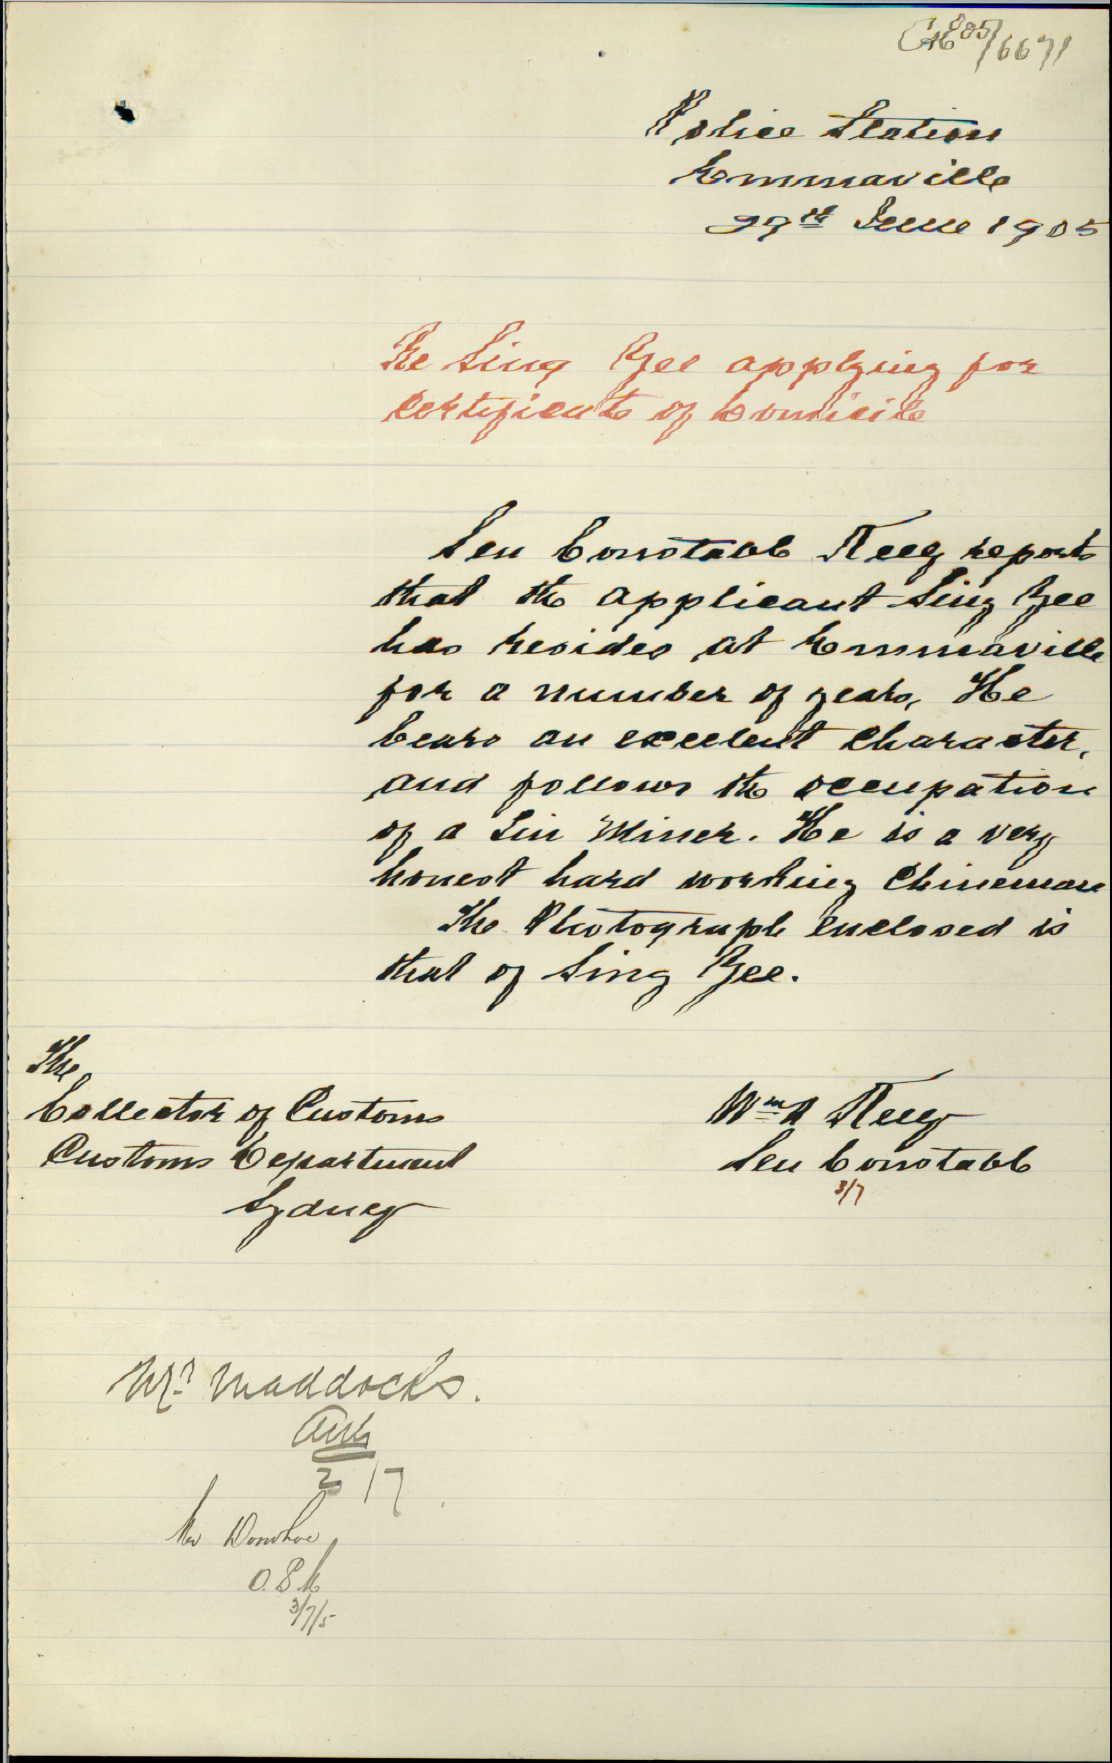 /6671
Police Station
Emmaville
29th June 1905
Re Sing Gee applying for
certificate of Domicile
Sen Constable Keeg reports
that the applicant Sing Gee
has resided at Emmaville
for a number of years, He
bears an excelent character,
and follows the occupation
of a Tin Miner. He is a very
honest hard working Chineman
The Photograph enclosed is
that of Sing Gee.
The
Collector of Customs
Customs Department
Sydney
Wm A Keeg
Sen Constable
3/7
Mr Maddocks.
3/7
Mr Donohoe
3/7/5